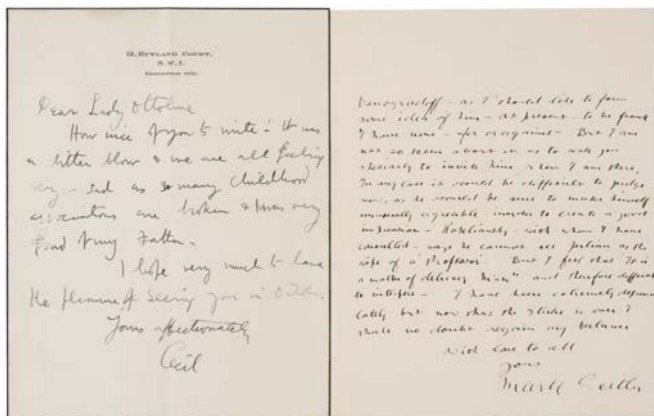 12, RUTLAND COURT,
S.W.7.
Dear Lady Ottoline
How nice of you to write! It was
a bitter blow & we are all feeling
very sad as so many childhood
associations are broken & I was very
fond of my Father.
I hope very much to have
the pleasure of seeing you in October
Yours affectionately
Cecil
Vinogradoff - as I should like to form
some idea of him - at present - to be frank
I have none - for or against - But I am
not so keen about it as to ask you
specially to invite him when I am there.
In any case it would be difficult to judge
now, as he would be sure to make himself
unusually agreeable in order to create a good
impression - Koteliansky - with whom I have
consulted - says he cannot see Julian as the
wife of a "Professor". But I feel that it is
a matter of delicacy and therefore difficult
to interfere - I have been extremely depressed
lately but now that the is over I
shall no doubt regain my balance
with love to all
yours
Mark Gertler